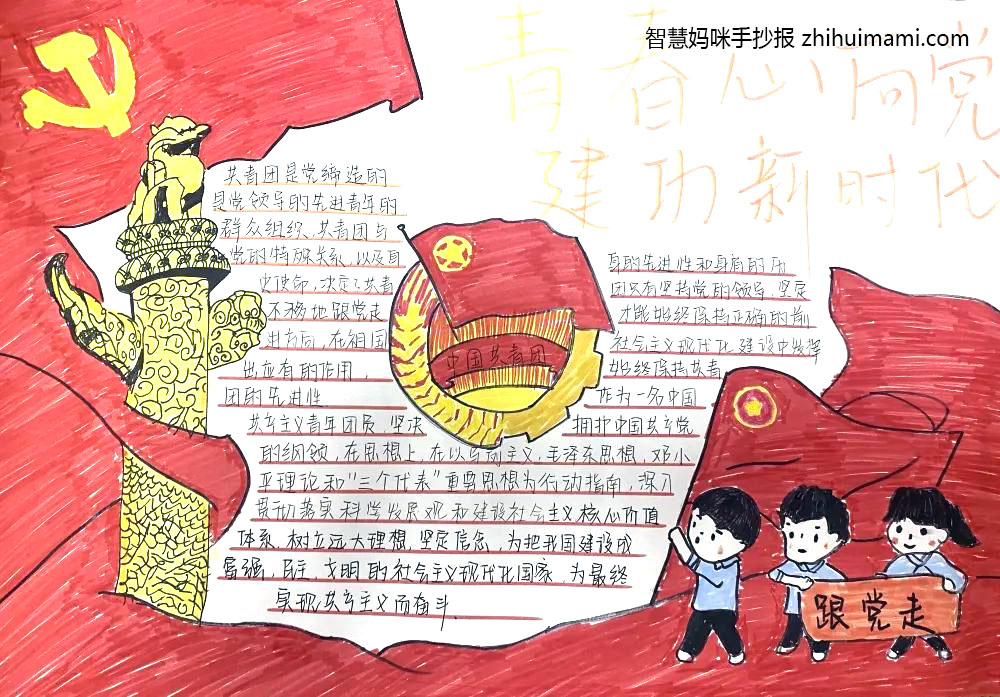 智慧妈咪手抄报 zhihuimami.com
青春心向党
建功新时代
共青团是党缔造的
是党领导的先进青年的
群众组织、共青团与
党的特殊关系,以及自
史使命,决定了共青
不移地跟党走
进方向,在祖国
出应有的作用,
团的先进性
身的先进性和身肩的历
团只有坚持党的领导,坚定
才能始终保持正确的前
社会主义现代化建设中发挥
始终保持共青
作为一名中国
中国共青团
共产主义青年团员,坚决
拥护中国共产党
的纲领,在思想上,在以马列主义,毛泽东思想,邓小
平理论和"三个代表"重要思想为行动指南,深入
贯彻落实科学发展观和建设社会主义核心价值
体系,树立远大理想,坚定信念,为把我国建设成
富强,民主,文明的社会主义现代化国家,为最终
实现共产主义而奋斗.
跟党走